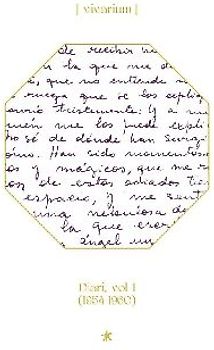 [ vivarium ]
de recibir
la que me d
, que no entiende
ruega que se los expliq
tristemente. Y a
me los puede expli
sé de dónde han surg
Han sido momentos
y mágicos, que me
de estos ahados tie
espacio, y me sent
una nebulosa de
la que era
ángel un
Diari, vol I
(1954-1960)